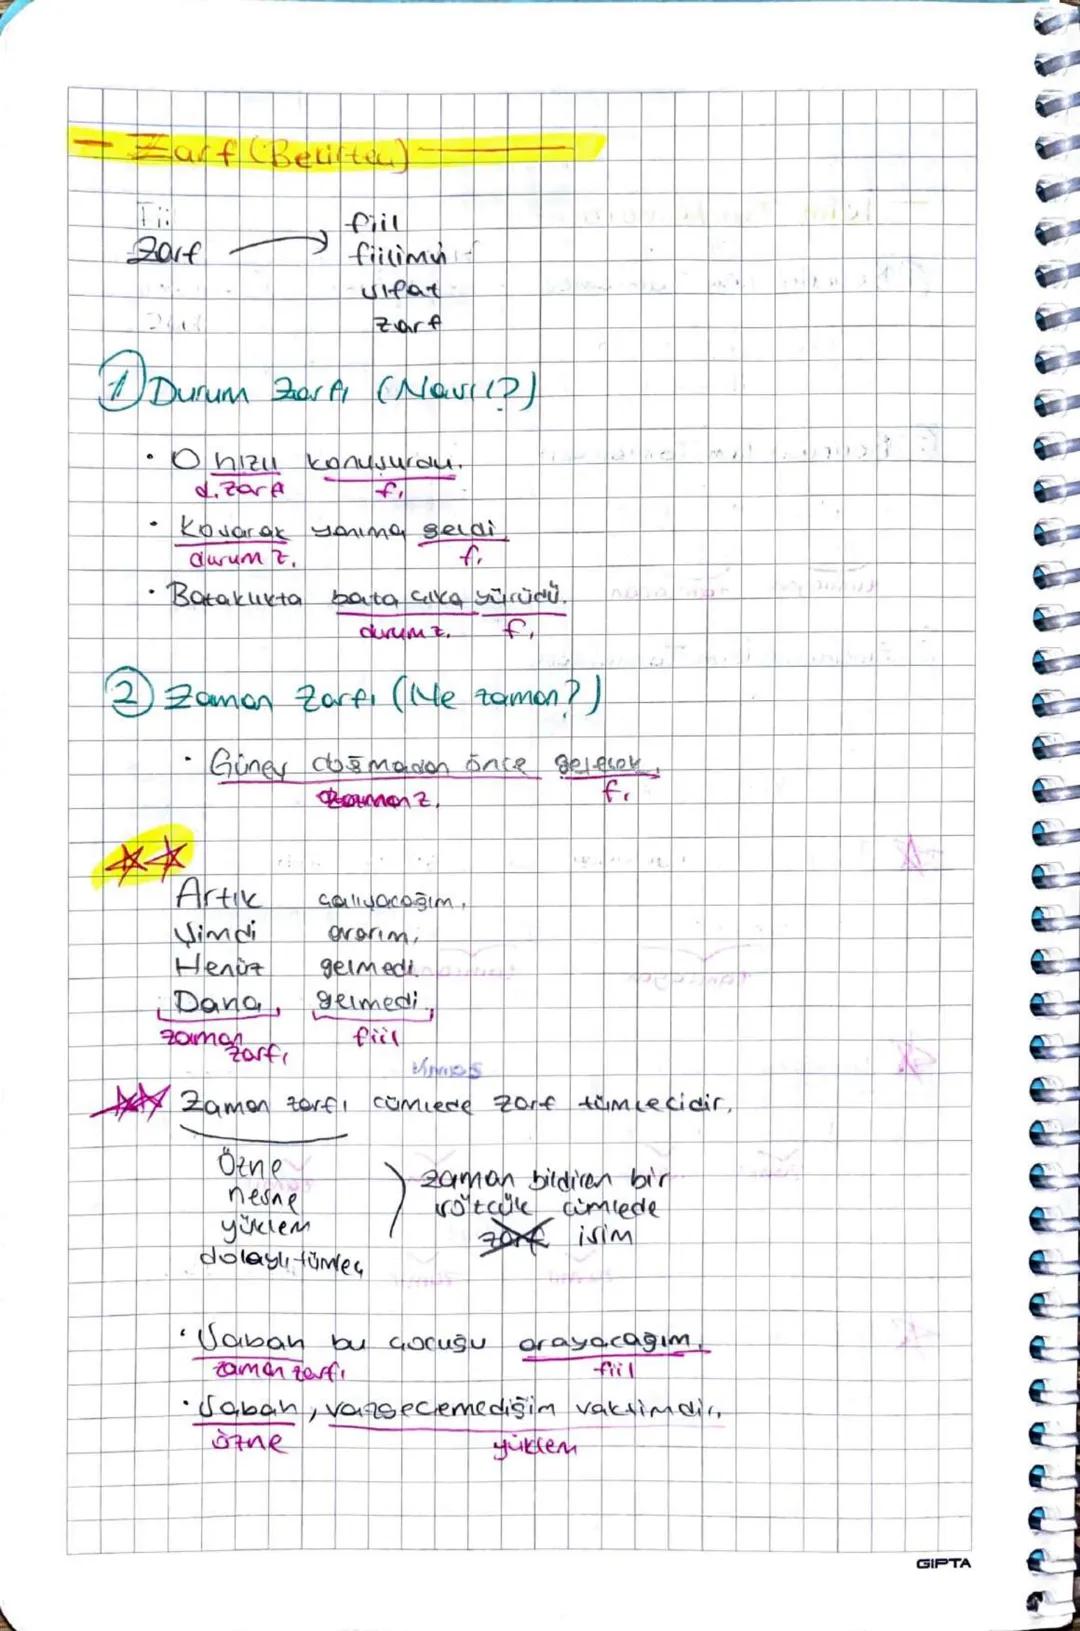 Zarf (Belirteç)
Zarf → fiil
fiilimsi
sıfat
zarf
1 Durum Zarfı (Nasıl?)
• O hızlı konuşurdu.
d. zarfı f.
• Koşarak yanıma geldi
durum z. f.
• Bataklıkta bata çıka yürüdü.
durum z. f.
2 Zaman Zarfı (Ne zaman?)
• Güneş doğmadan önce gelecek.
zaman z. f.
Artık çalışacağım.
Şimdi ararım.
Henüz gelmedi.
Daha gelmedi.
zaman zarfı fiil
Zaman zarfı cümlede zarf tümlecidir.
Özne
nesne
yüklem
dolaylı tümleç
zaman bildiren bir
sözcük cümlede
zarf isim
• Sabah bu çocuğu arayacağım.
zaman zarfı fiil
• Sabah, vazgeçemediğim vaktimdir.
özne yüklem
GIPTA